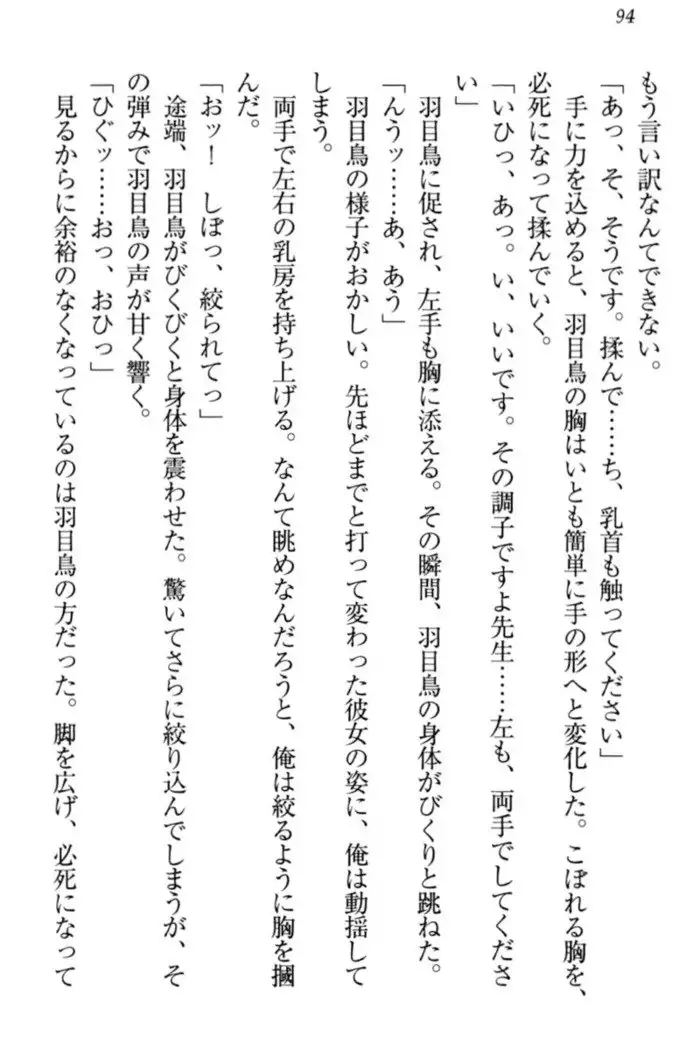 94
もう言い訳なんてできない。
「あっ、そ、そうです。揉んで……ち、乳首も触ってください」
手に力を込めると、羽目鳥の胸はいとも簡単に手の形へと変化した。こぼれる胸を、
必死になって揉んでいく。
「いひっ、あっ。い、いいです。その調子ですよ先生……左も、両手でしてくださ
い」
羽目鳥に促され、左手も胸に添える。その瞬間、羽目鳥の身体がびくりと跳ねた。
「んうッ……あ、あう」
羽目鳥の様子がおかしい。先ほどまでと打って変わった彼女の姿に、俺は動揺して
しまう。
両手で左右の乳房を持ち上げる。なんて眺めなんだろうと、俺は絞るように胸を摑
んだ。
「おッ！　しぼっ、絞られてっ」
途端、羽目鳥がびくびくと身体を震わせた。驚いてさらに絞り込んでしまうが、そ
の弾みで羽目鳥の声が甘く響く。
「ひぐッ……おっ、おひっ」
見るからに余裕のなくなっているのは羽目鳥の方だった。脚を広げ、必死になって